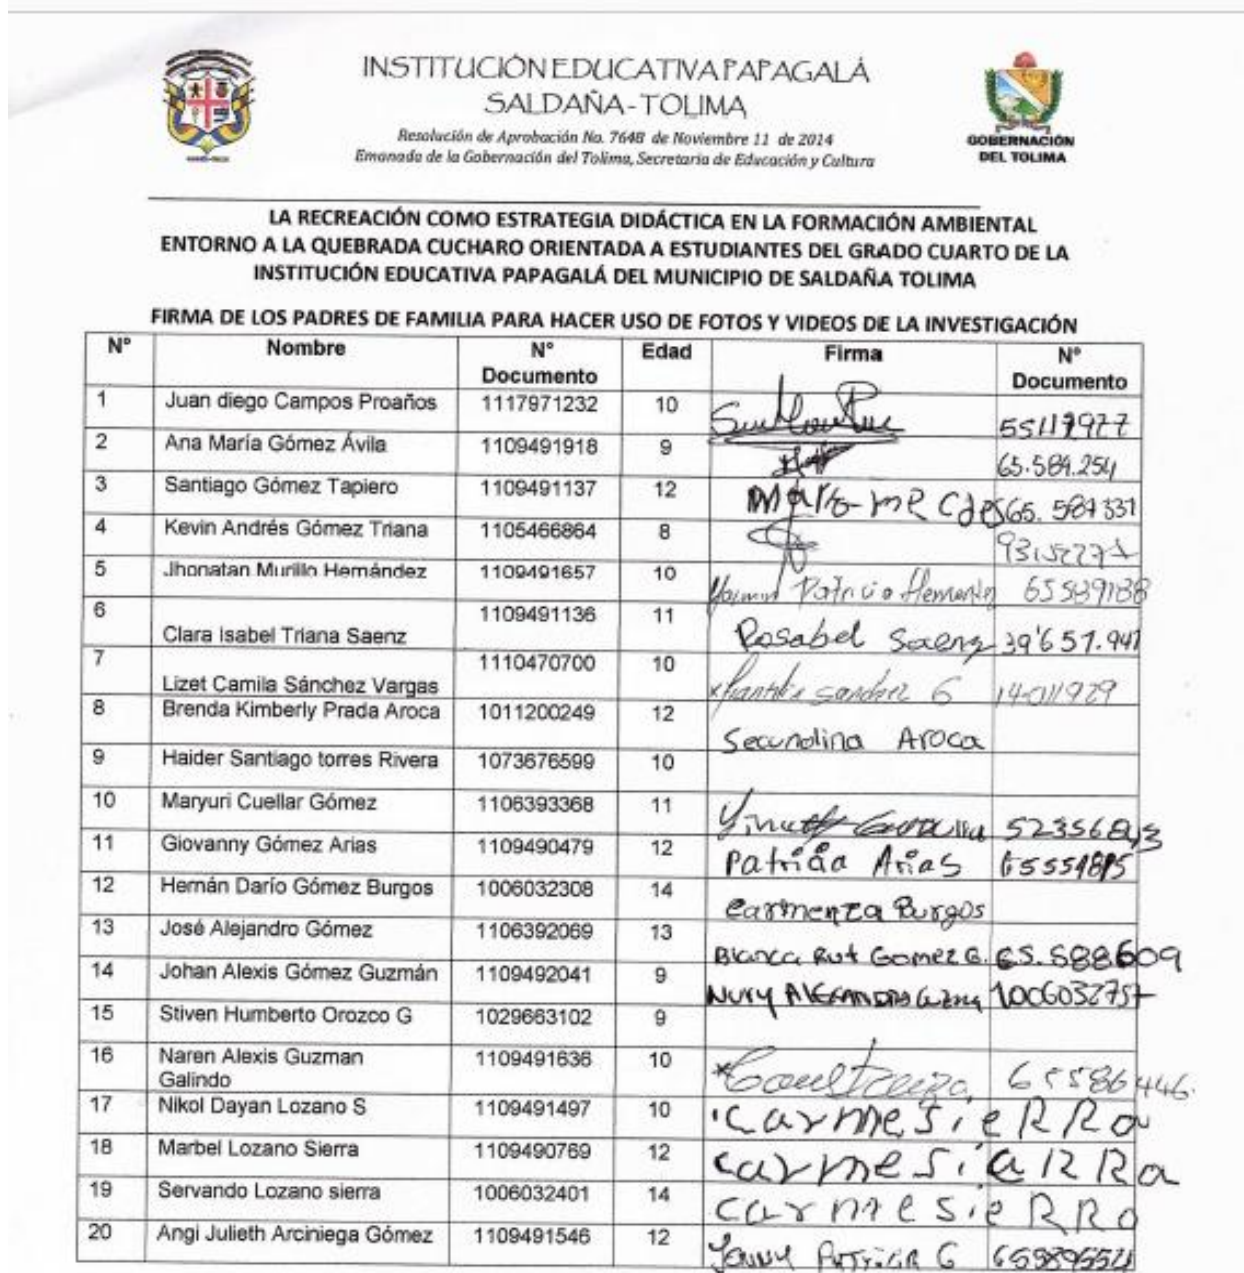 INSTITUCIÓN EDUCATIVA PAPAGALÁ
SALDAÑA - TOLIMA
Resolución de Aprobación No. 7648 de Noviembre 11 de 2014
Emanada de la Gobernación del Tolima, Secretaria de Educación y Cultura
GOBERNACIÓN
DEL TOLIMA
LA RECREACIÓN COMO ESTRATEGIA DIDÁCTICA EN LA FORMACIÓN AMBIENTAL
ENTORNO A LA QUEBRADA CUCHARO ORIENTADA A ESTUDIANTES DEL GRADO CUARTO DE LA
INSTITUCIÓN EDUCATIVA PAPAGALÁ DEL MUNICIPIO DE SALDAÑA TOLIMA
FIRMA DE LOS PADRES DE FAMILIA PARA HACER USO DE FOTOS Y VIDEOS DE LA INVESTIGACIÓN
N° Nombre N° Documento Edad Firma N° Documento
1 Juan diego Campos Proaños 1117971232 10
2 Ana María Gómez Ávila 1109491918 9 65.584.254
3 Santiago Gómez Tapiero 1109491137 12
4 Kevin Andrés Gómez Triana 1105466864 8
5 Jhonatan Murillo Hernández 1109491657 10 Patricia 65589188
6 Clara Isabel Triana Saenz 1109491136 11 Rosabel Saenz 39'657.947
7 Lizet Camila Sánchez Vargas 1110470700 10 sanchez G 14011929
8 Brenda Kimberly Prada Aroca 1011200249 12 Secundina Aroca
9 Haider Santiago torres Rivera 1073676599 10
10 Maryuri Cuellar Gómez 1106393368 11 52356843
11 Giovanny Gómez Arias 1109490479 12 Patricia Arias
12 Hernán Darío Gómez Burgos 1006032308 14 Carmenza Burgos
13 José Alejandro Gómez 1106392069 13 Blanca Rut Gomez G. 65.588609
14 Johan Alexis Gómez Guzmán 1109492041 9 Nury 1006032757
15 Stiven Humberto Orozco G 1029663102 9
16 Naren Alexis Guzman Galindo 1109491636 10 65586446.
17 Nikol Dayan Lozano S 1109491497 10 carmesieRRa
18 Marbel Lozano Sierra 1109490769 12 carmesiaRRa
19 Servando Lozano sierra 1006032401 14 carmesieRRa
20 Angi Julieth Arciniega Gómez 1109491546 12